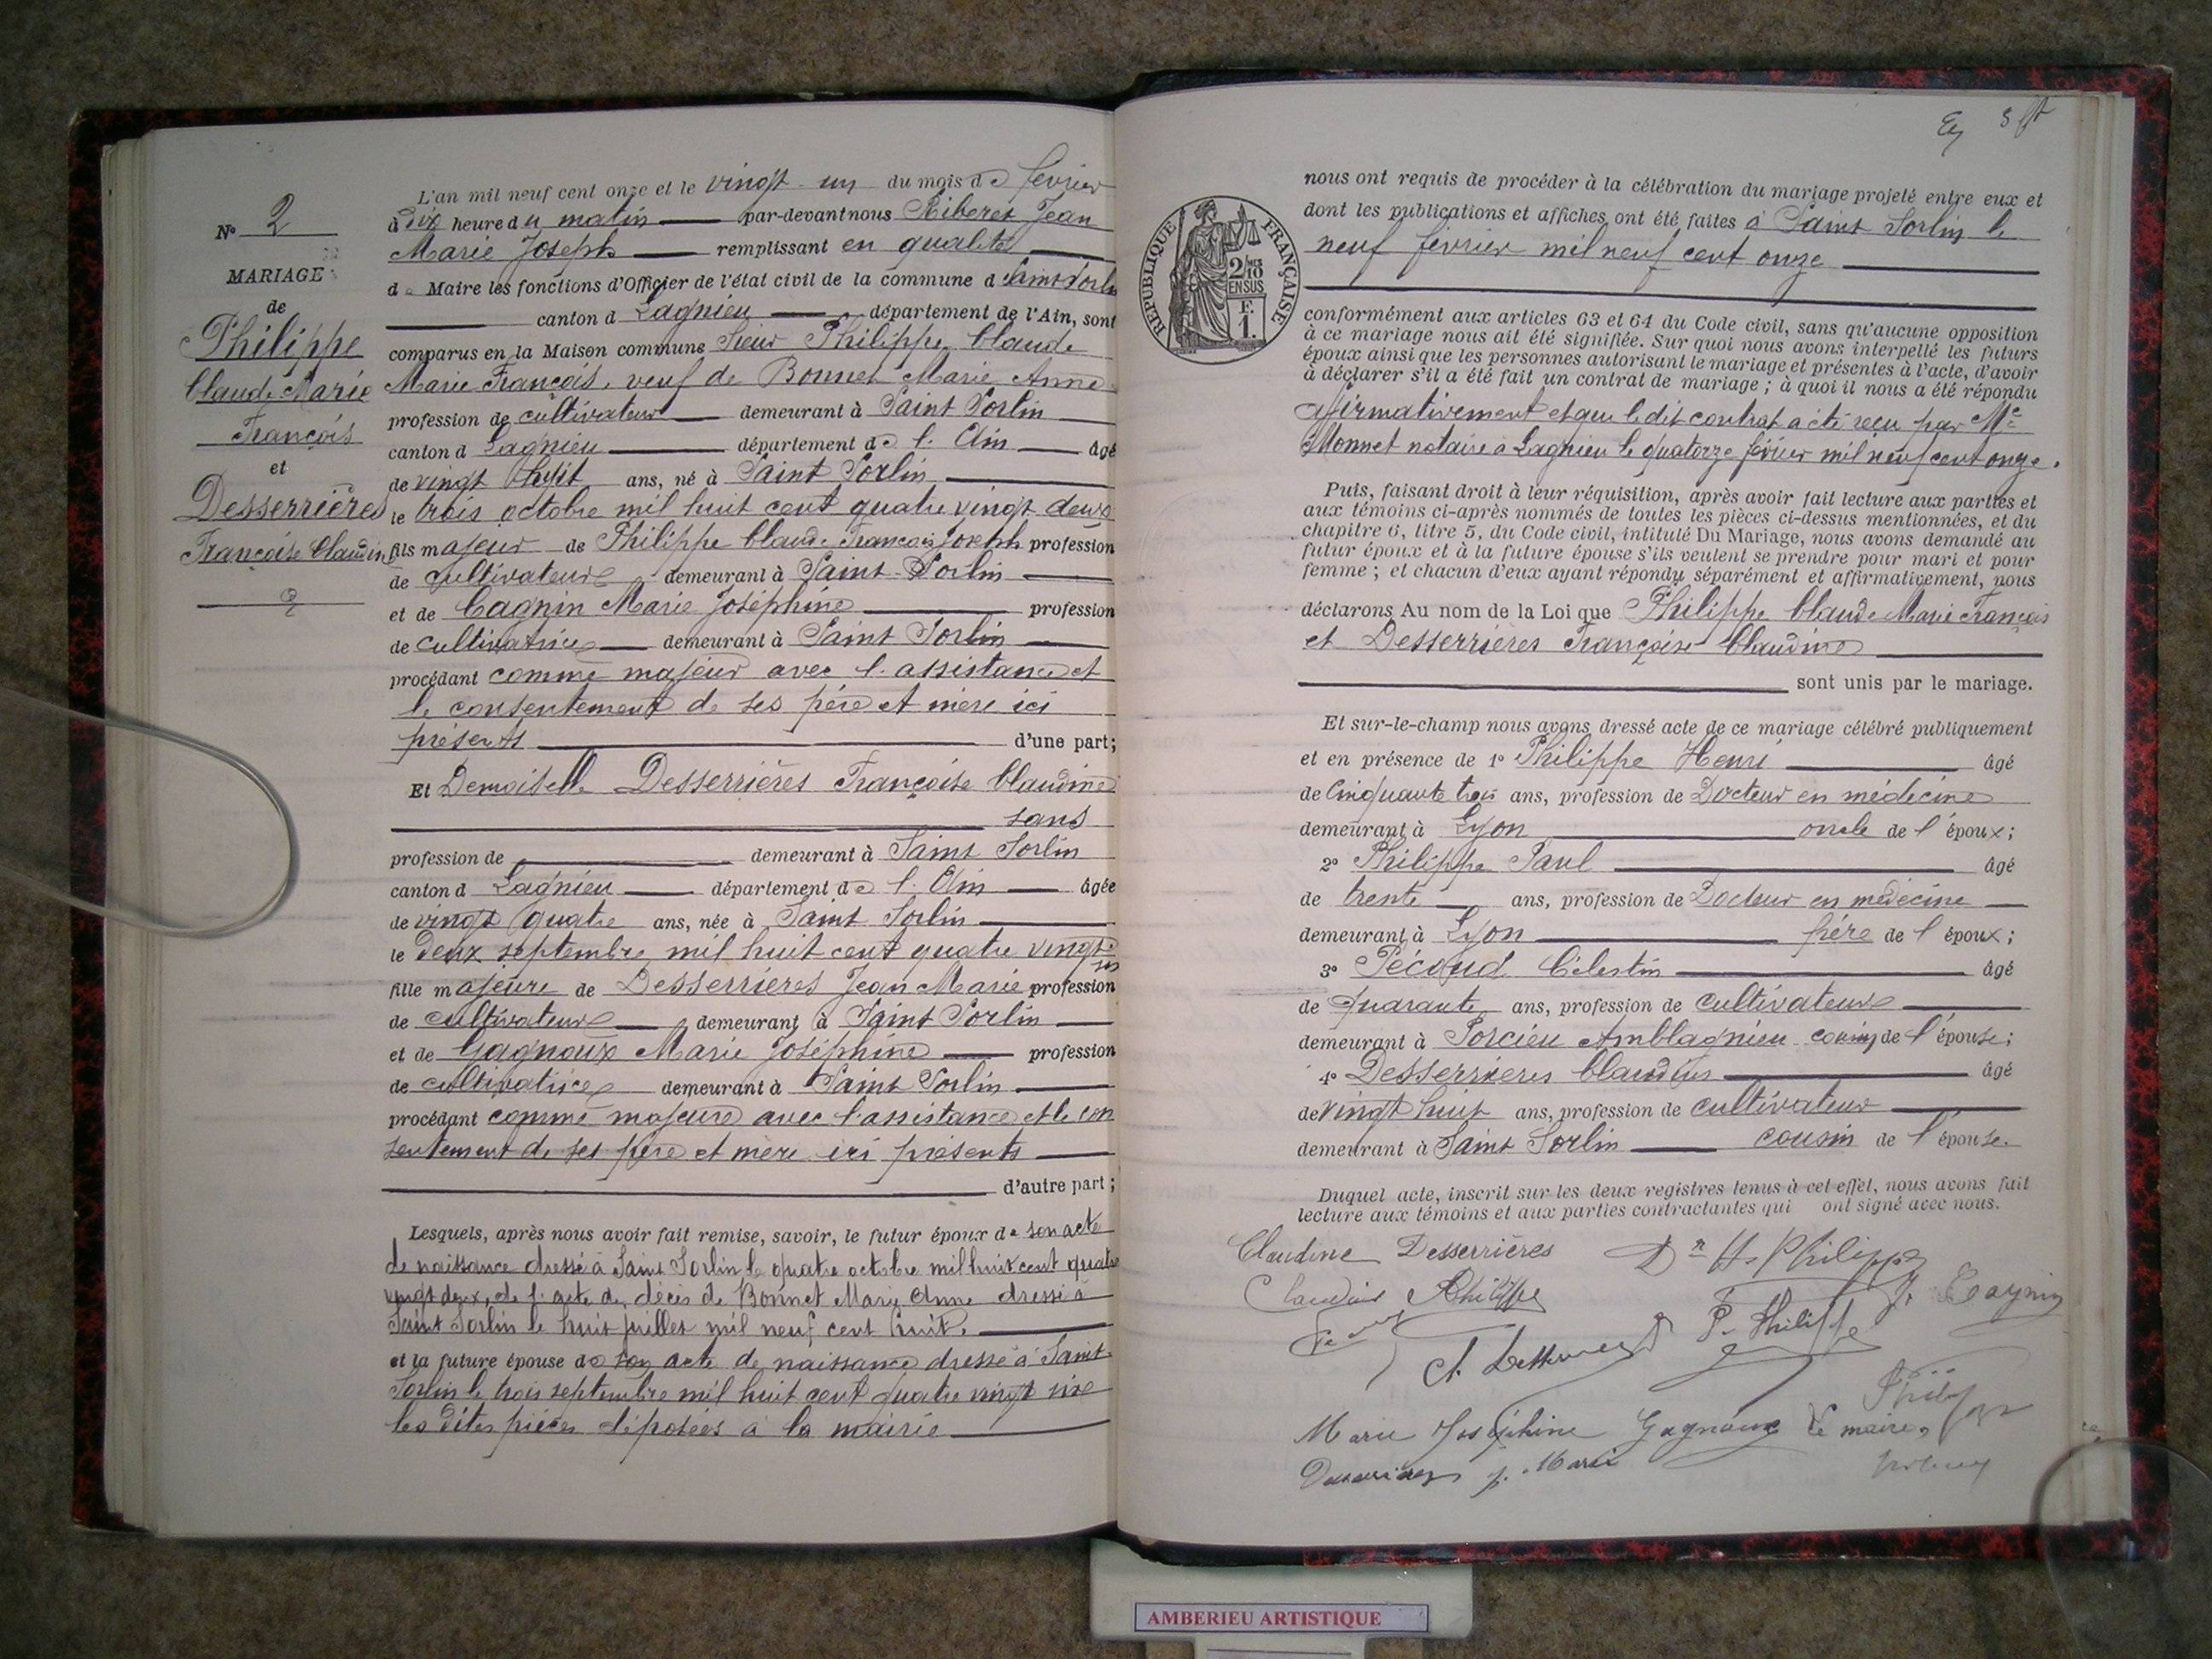 N° 2
MARIAGE
de
Philippe
Claude Marie
François
et
Desserrières
Françoise Claudine
L'an mil neuf cent onze et le vingt-un du mois de février
à dix heure du matin par-devant nous Riberet Jean
Marie Joseph remplissant en qualité
de Maire les fonctions d'Officier de l'état civil de la commune d Saint Sorlin
canton d Lagnieu département de l'Ain, sont
comparus en la Maison commune Sieur Philippe Claude
Marie François, veuf de Bonnet Marie Anne
profession de cultivateur demeurant à Saint Sorlin
canton d Lagnieu département de l'Ain âgé
de vingt huit ans, né à Saint Sorlin
le trois octobre mil huit cent quatre vingt deux
fils majeur de Philippe Claude François Joseph profession
de cultivateur demeurant à Saint-Sorlin
et de Cagnin Marie Joséphine profession
de cultivatrice demeurant à Saint Sorlin
procédant comme majeur avec l'assistance et
le consentement de ses père et mère ici
présents d'une part;
Et Demoiselle Desserrières Françoise Claudine
sans
profession de demeurant à Saint Sorlin
canton d Lagnieu département de l'Ain âgée
de vingt quatre ans, née à Saint Sorlin
le deux septembre mil huit cent quatre vingt-
six
fille majeure de Desserrières Jean Marie profession
de cultivateur demeurant à Saint Sorlin
et de Gagnoux Marie Joséphine profession
de cultivatrice demeurant à Saint Sorlin
procédant comme majeure avec l'assistance et le con
sentement de ses père et mère ici présents
d'autre part;
Lesquels, après nous avoir fait remise, savoir, le futur époux de son acte
de naissance dressé à Saint Sorlin le quatre octobre mil huit cent quatre
vingt deux, de l'acte de décès de Bonnet Marie Anne dressé à
Saint Sorlin le huit juillet mil neuf cent huit.
et la future épouse de son acte de naissance dressé à Saint-
Sorlin le trois septembre mil huit cent quatre vingt six
les dites pièces déposées à la mairie
8
RÉPUBLIQUE FRANÇAISE
2/10
EN SUS
F.
1.
nous ont requis de procéder à la célébration du mariage projeté entre eux et
dont les publications et affiches ont été faites à Saint Sorlin le
neuf février mil neuf cent onze
conformément aux articles 63 et 64 du Code civil, sans qu'aucune opposition
à ce mariage nous ait été signifiée. Sur quoi nous avons interpellé les futurs
époux ainsi que les personnes autorisant le mariage et présentes à l'acte, d'avoir
à déclarer s'il a été fait un contrat de mariage; à quoi il nous a été répondu
affirmativement et que le dit contrat a été reçu par Me
Monnet notaire à Lagnieu le quatorze février mil neuf cent onze.
Puis, faisant droit à leur réquisition, après avoir fait lecture aux parties et
aux témoins ci-après nommés de toutes les pièces ci-dessus mentionnées, et du
chapitre 6, titre 5, du Code civil, intitulé Du Mariage, nous avons demandé au
futur époux et à la future épouse s'ils veulent se prendre pour mari et pour
femme; et chacun d'eux ayant répondu séparément et affirmativement, nous
déclarons Au nom de la Loi que Philippe Claude Marie François
et Desserrières Françoise Claudine
sont unis par le mariage.
Et sur-le-champ nous avons dressé acte de ce mariage célébré publiquement
et en présence de 1° Philippe Henri âgé
de cinquante trois ans, profession de Docteur en médecine
demeurant à Lyon oncle de l'époux;
2° Philippe Paul âgé
de trente ans, profession de Docteur en médecine
demeurant à Lyon frère de l'époux;
3° Pécoud Célestin âgé
de quarante ans, profession de cultivateur
demeurant à Porcieu Amblagnieu cousin de l'épouse;
4° Desserrières Claudius âgé
de vingt huit ans, profession de cultivateur
demeurant à Saint Sorlin cousin de l'épouse.
Duquel acte, inscrit sur les deux registres tenus à cet effet, nous avons fait
lecture aux témoins et aux parties contractantes qui ont signé avec nous.
Claudine Desserrières Dr H. Philippe
Claudius Philippe J. Cagnin
P. Philippe
Philippe
Marie Joséphine Gagnoux Le maire,
Desserrières J. Marie
AMBERIEU ARTISTIQUE